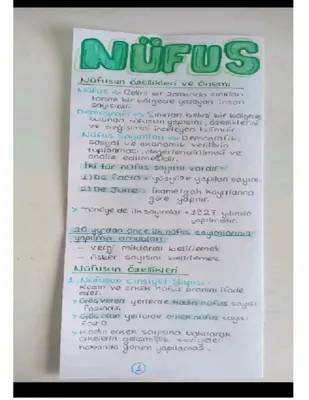 NÜFUS
Nüfusun özellikleri ve önemi
Nüfus => Belirli bir zamanda sınırları
tanımlı bir bölgede yaşayan insan
sayısıdır.
Demografi => Sınırları belirli bir bölgede
nüfusun yapısını, özelliklerini
ve değişimini inceleyen bilimdir.
Nüfus Sayımları => Demografik,
sosyal ve ekonomik verilerin
toplanması, değerlendirilmesi ve
analiz edilmesidir.
İki tür nüfus sayımı vardır
1) De Facto = yüzyüze yapılan sayım.
2) De Jure = İkametgah kayıtlarına
göre yapılır.
> Türkiye'de ilk sayımlar = 1927 yılında
yapılmıştır.
20. yy'dan önce ilk nüfus sayımlarının
yapılma amaçları
- vergi miktarını belirlemek
- Asker sayısını belirlemek
Nüfusun Özellikleri
1. Nüfusun Cinsiyet Yapısı:
Kadın ve erkek nüfus oranını ifade
eder.
> Göç veren yerlerde kadın nüfus sayısı
fazladır.
> Göç alan yerlerde erkek nüfus sayısı
fazla.
> Kadın erkek sayısına bakılarak
ülkelerin gelişmişlik seviyeleri
hakkında yorum yapılamaz.
1